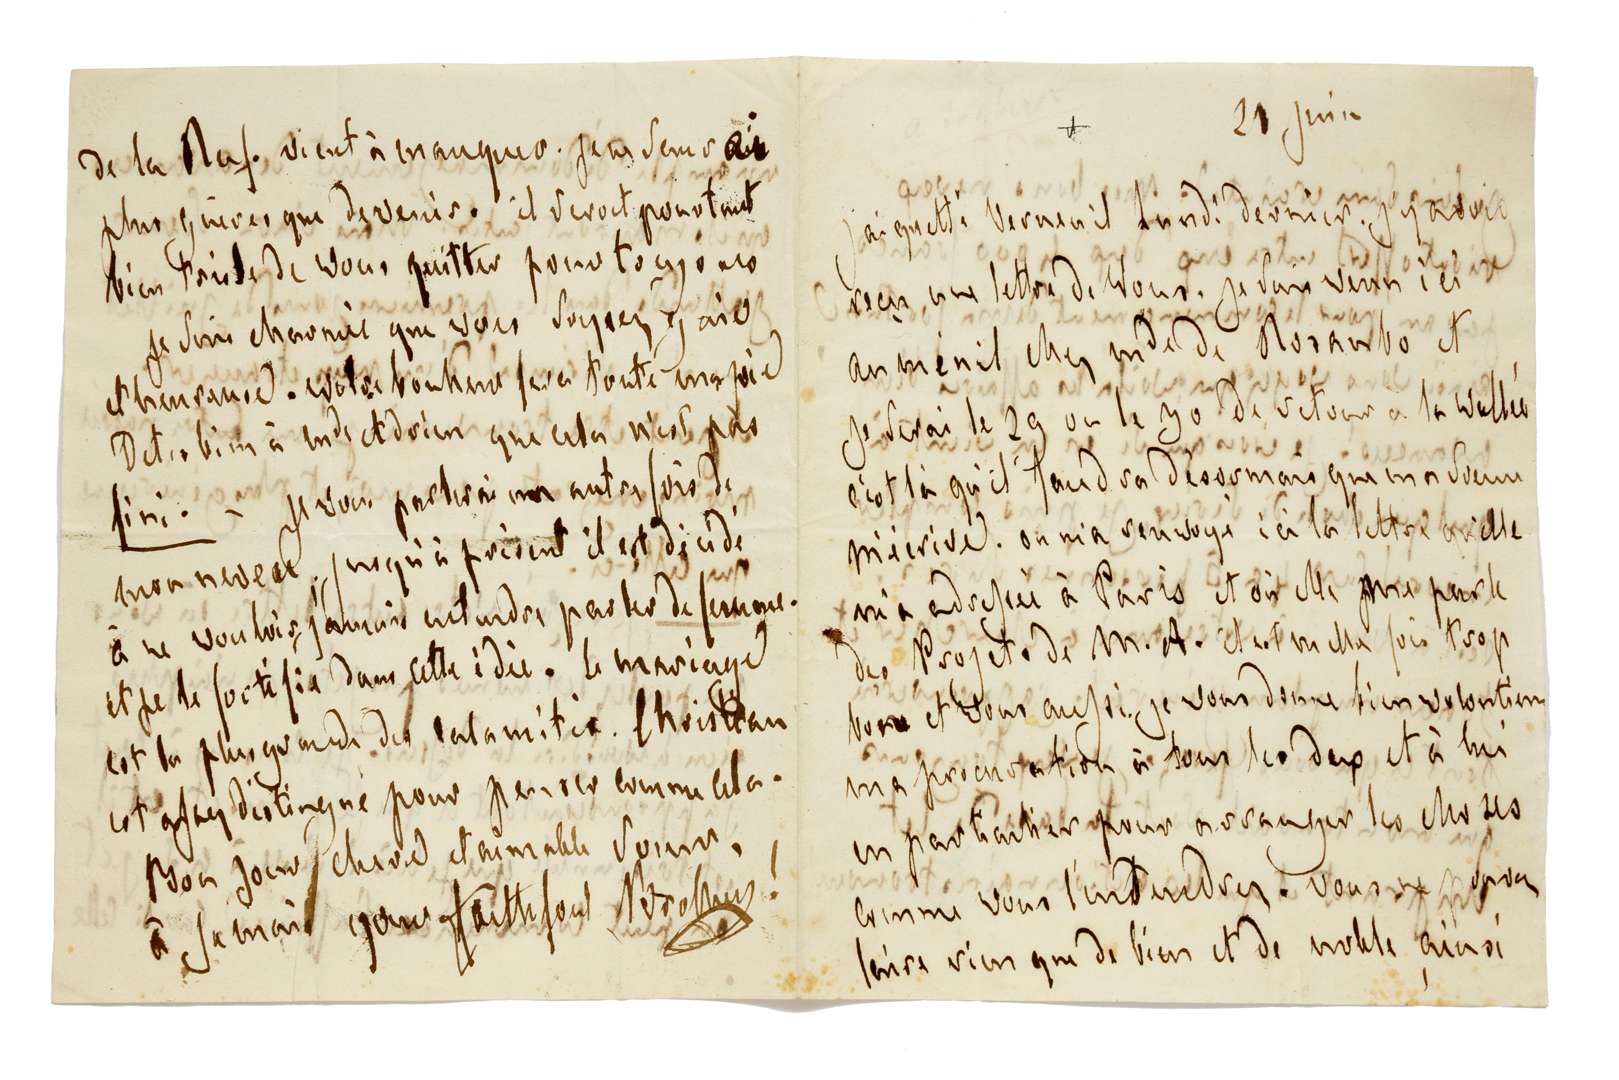 de la Rus. vient à manquer. je ne sais
plus guères que devenir. il seroit pourtant
bien triste de vous quitter pour toujours
je suis charmé que vous soyez gaie
et heureuse. votre bonheur sera toute ma joie
Dites bien à mde et drien que cela n'est pas
fini. - Je vous parlerai une autre fois de
mon neveu, jusqu'à présent il est décidé
à ne vouloir jamais entendre parler de femme.
et je le fortifie dans cette idée. le mariage
est la plus grande des calamités. Christian
est assez distingué pour penser comme cela.
Bon jour chere et aimable soeur,
à jamais your faithfoul Brother!
21 juin
+
j'ai quitté Verneuil lundi dernier. j'y avois
reçu une lettre de vous. je suis venu ici
au ménil chez mde de Rosambo et
je serai le 29 ou le 30 de retour à la vallée
c'est là qu'il faudra désormais que ma soeur
m'écrive. on m'a renvoyé ici la lettre qu'elle
m'a adressée à Paris et où elle me parle
des Projets de M. A. il est mille fois trop
bon et vous aussi. je vous donne bien volontiers
ma procuration à tous les deux et à lui
en particulier pour arranger les choses
comme vous l'entendrez. vous ne pouvez
faire rien que de bien et de noble ainsi